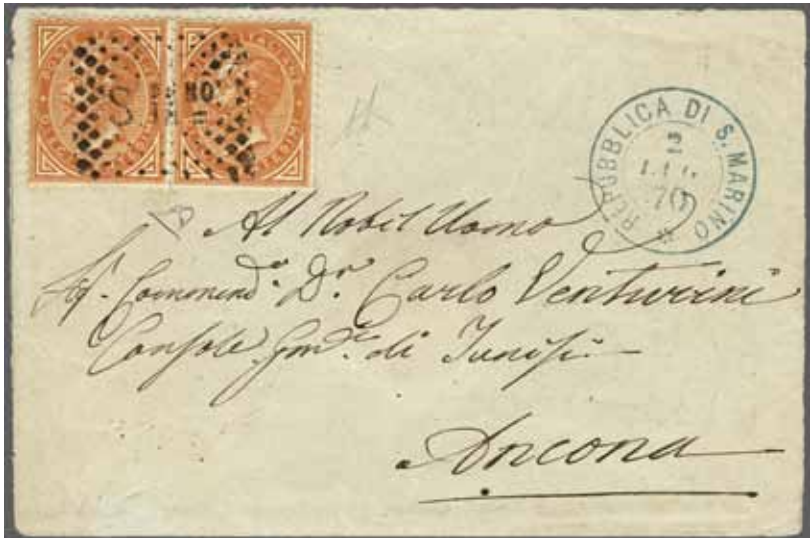 S. MARINO
REPUBBLICA DI S. MARINO
2
LUG
70
Al Nobil Uomo
Sigr. Commendr. Dr. Carlo Venturini
Console Gnle. di Tunisi
Ancona